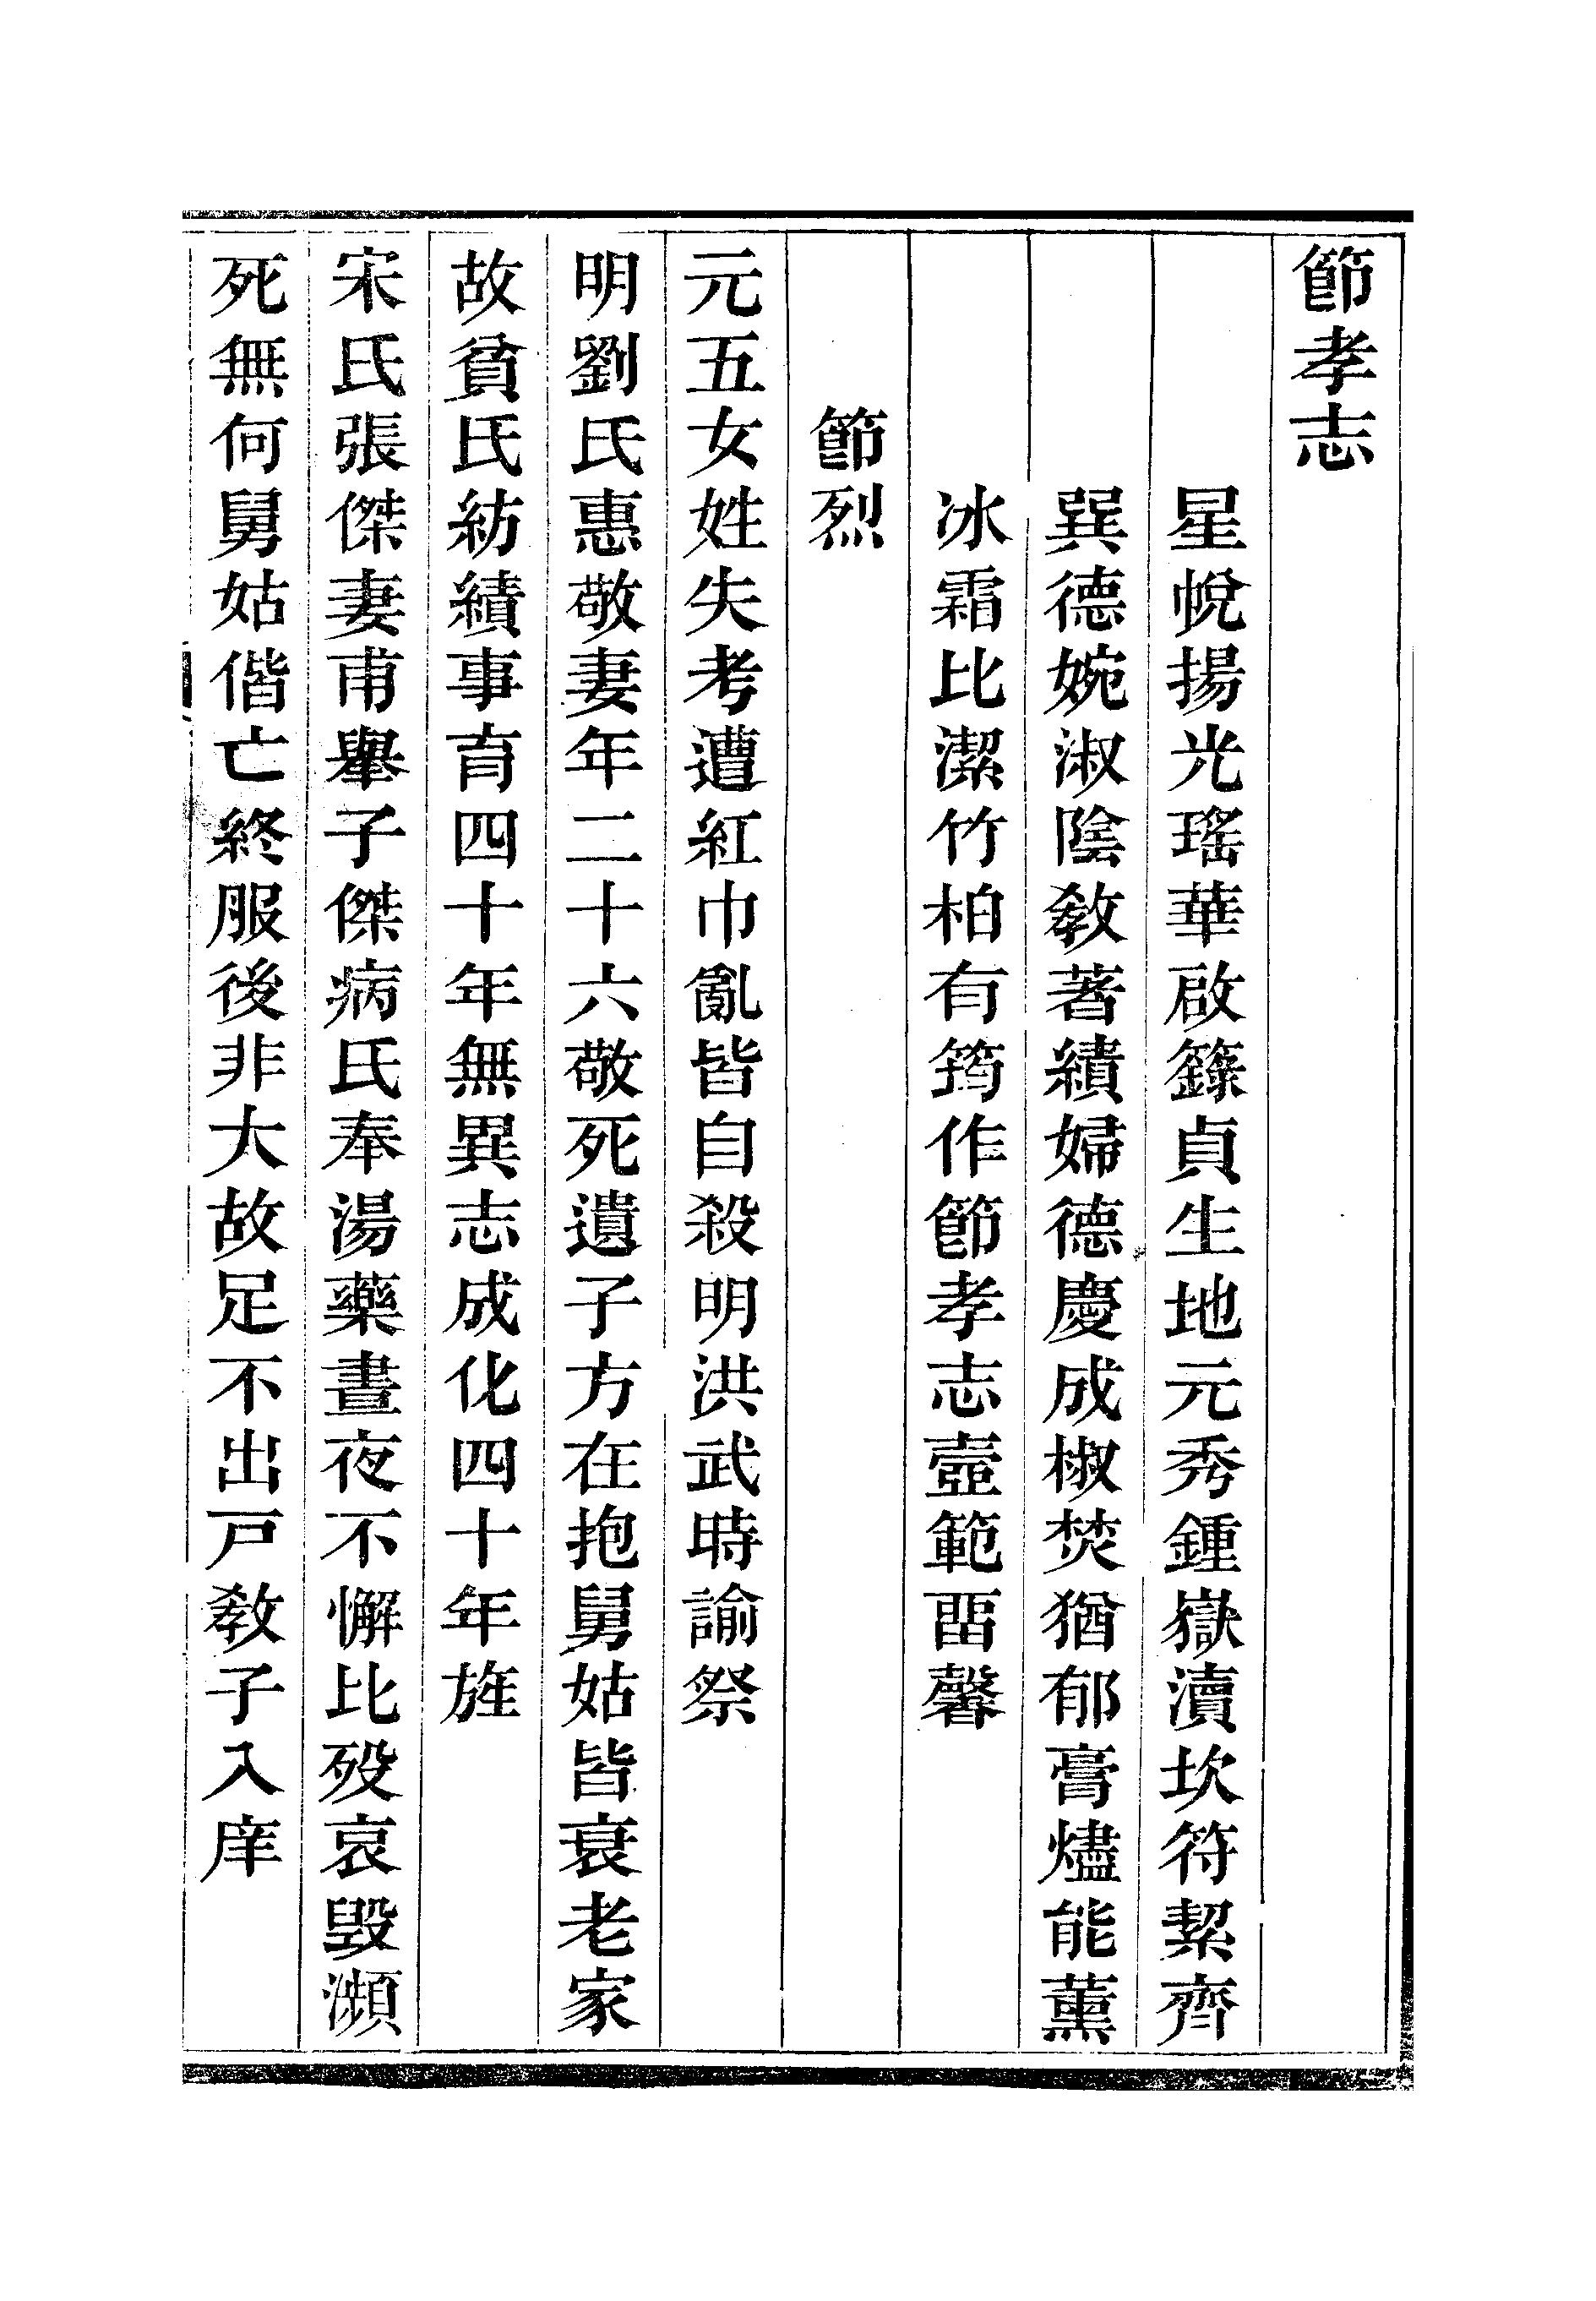 節孝志
星帨揚光瑤華啟籙貞生地元秀鍾嶽瀆坎符絜齊
巽德婉淑陰敎著績婦德慶成椒焚猶郁膏燼能薰
冰霜比潔竹柏有筠作節孝志壼範畱馨
節烈
元五女姓失考遭紅巾亂皆自殺明洪武時諭祭
明劉氏惠敬妻年二十六敬死遺子方在抱舅姑皆衰老家
故貧氏紡績事育四十年無異志成化四十年旌
宋氏張傑妻甫舉子傑病氏奉湯藥晝夜不懈比歿哀毀瀕
死無何舅姑偕亡終服後非大故足不出戸敎子入庠